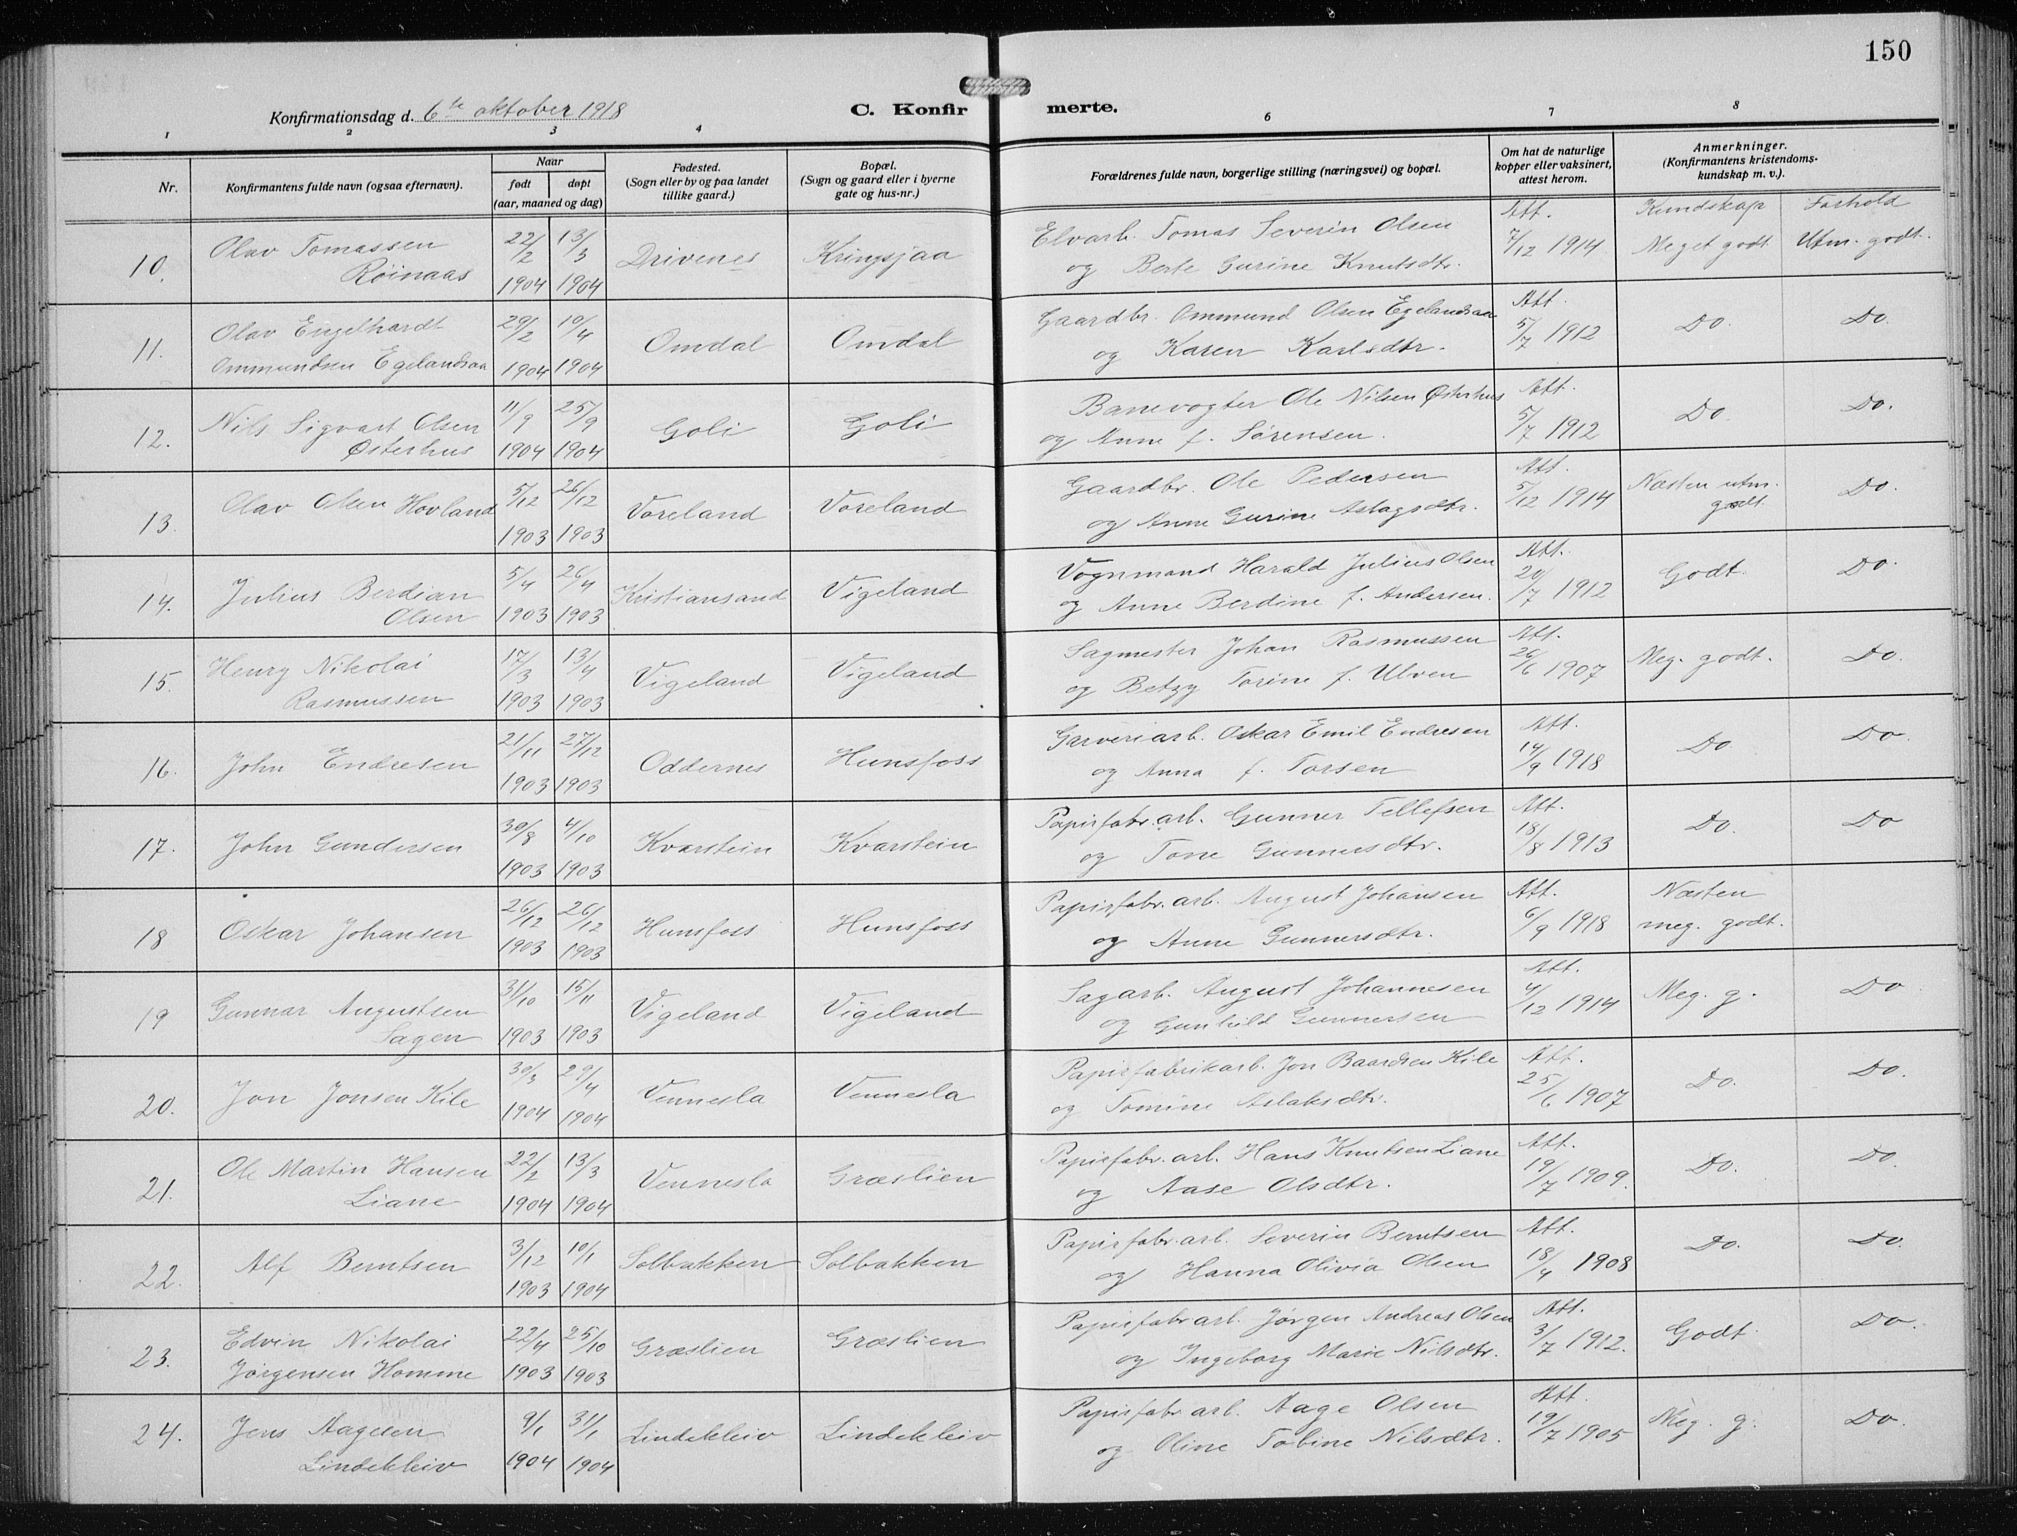 150
Konfirmationsdag d. 6te oktober 1918
C. Konfirmerte.
1 2 3 4 5 6 7 8
Nr.
Konfirmantens fulde navn (ogsaa efternavn).
Naar
født døpt
(aar, maaned og dag)
Fødested.
(Sogn eller by og paa landet
tillike gaard.)
Bopæl.
(Sogn og gaard eller i byerne
gate og hus-nr.)
Forældrenes fulde navn, borgerlige stilling (næringsvei) og bopæl.
Om hat de naturlige
kopper eller vaksinert,
attest herom.
Anmerkninger.
(Konfirmantens kristendoms-
kundskap m. v.).
Kundskap Forhold
10. Olav Tomassen Røinaas 22/2 1904 13/3 1904 Drivenes Kringsjaa Elvarb. Tomas Severin Olsen og Berte Gurine Knutsdtr. Att. 7/12 1914 Meget godt Utm. godt.
11. Olav Engelhardt Ommundsen Egelandsaa 29/2 1904 10/4 1904 Omdal Omdal Gaardbr. Ommund Olsen Egelandsaa og Karen Karlsdtr. Att. 5/7 1912 Do. Do.
12. Nils Sigvart Olsen Østerhus 11/9 1904 25/9 1904 Goli Goli Banevogter Ole Nilsen Østerhus og Anne f. Sørensen. Att. 5/7 1912 Do. Do.
13. Olav Olsen Hovland 5/12 1903 26/12 1903 Voreland Voreland Gaardbr. Ole Pedersen og Anne Gurine Aslagsdtr. Att. 5/12 1914 Næsten utm. godt. Do.
14. Julius Berdian Olsen 5/4 1903 26/4 1903 Kristiansand Vigeland Vognmand Harald Julius Olsen og Anne Berdine f. Andersen. Att. 20/7 1912 Godt. Do.
15. Henry Nikolai Rasmussen 17/3 1903 13/4 1903 Vigeland Vigeland Sagmester Johan Rasmussen og Betzy Torine f. Ulven Att. 26/6 1907 Meg. godt. Do.
16. John Endresen 21/11 1903 27/12 1903 Oddernes Hunsfoss Garveriarb. Oskar Emil Endresen og Anna f. Torsen Att. 14/9 1918 Do Do.
17. John Gundersen 30/8 1903 4/10 1903 Kvarstein Kvarstein Papirfabr.arb. Gunner Tellefsen og Tone Gunnersdtr. Att. 18/8 1913 Do. Do
18 Oskar Johansen 26/12 1903 26/12 1903 Hunsfoss Hunsfoss Papirfabr.arb. August Johansen og Anne Gunnersdtr. Att. 6/9 1918 Næsten meg. godt.
19 Gunnar Augustsen Sagen 31/10 1903 15/11 1903 Vigeland Vigeland Sagarb. August Johannesen og Gunhild Gunnersen Att. 4/12 1914 Meg. g. Do
20. Jon Jonsen Kile 30/3 1904 29/4 1904 Vennesla Vennesla Papirfabrikarb. Jon Baardsen Kile og Tomine Aslaksdtr. Att. 25/6 1907 Do. Do.
21. Ole Martin Hansen Liane 22/2 1904 13/3 1904 Vennesla Græslien Papirfabr.arb. Hans Knutsen Liane og Aase Olsdtr. Att. 19/7 1909. Do. Do.
22. Alf Berntsen 3/12 1903 10/1 1904 Solbakken Solbakken Papirfabr.arb. Severin Berntsen og Hanna Olivia Olsen Att. 18/4 1908 Do. Do.
23. Edvin Nikolai Jørgensen Homme 22/4 1903 25/10 1903 Græslien Græslien Papirfabr.arb. Jørgen Andreas Olsen og Ingeborg Marie Nilsdtr. Att. 3/7 1912. Godt. Do.
24. Jens Aagesen Lindekleiv 9/1 1904 31/1 1904 Lindekleiv Lindekleiv Papirfabr.arb. Aage Olsen og Oline Tobine Nilsdtr. Att. 19/7 1905 Meg. g. Do.